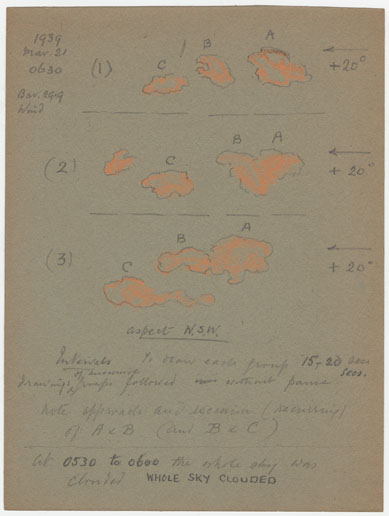 1939
Mar. 21
0630
Bar. 29.9
Wind
(1) C B A
+20°
(2) C B A
+20°
(3) C B A
+20°
aspect N.S.W.
Intervals to draw each group 15-20 secs
secs.
of succeeding
Drawings, groups followed without pause
Note approach and recession (recurring)
of A & B (and B & C)
At 0530 to 0600 the whole sky was
clouded WHOLE SKY CLOUDED